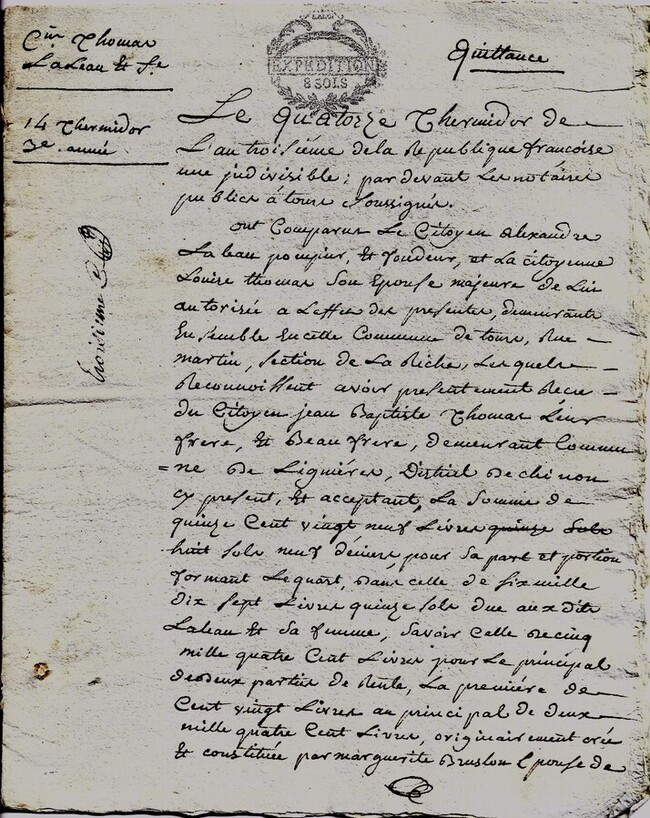 Cen Thomas
Laleau et Se
EXPEDITION
8 SOLS
Quittance
14 Thermidor
3e. année
Le quatorze Thermidor de
L'an troisieme de la Republique françoise
une indivisible; par devant Les notaires
publics à tours soussignés.
ont Comparus Le Citoyen Alexandre
Laleau pompier, et fondeur, et La citoyenne
Louise Thomas Son Epouse majeure de Lui
autorisée a L'effet des presentes, demeurants
Ensemble En cette Commune de tours, Rue
martin, section de La Riche, Lesquels
Reconnoissent avoir presentement Recu
du Citoyen jean Baptiste Thomas Leur
frere, Et Beau frere, demeurant Commu
=ne De Lignières, District De chinon
cy present, Et acceptant, La Somme de
quinze Cent vingt neuf Livres quinze Sols
huit sols neuf deniers pour Sa part et portion
formant Le quart, Dans celle de Six mille
dix sept Livres quinze sols due aux dits
Laleau Et Sa femme, Savoir Celle De cinq
mille quatre Cent Livres pour Le principal
de Deux parties de Rente, La premiére de
Cent vingt Livres au principal de deux
mille quatre Cent Livres, originairement crée
Et constituée par marguerite Bruslon Epouse de
troisieme